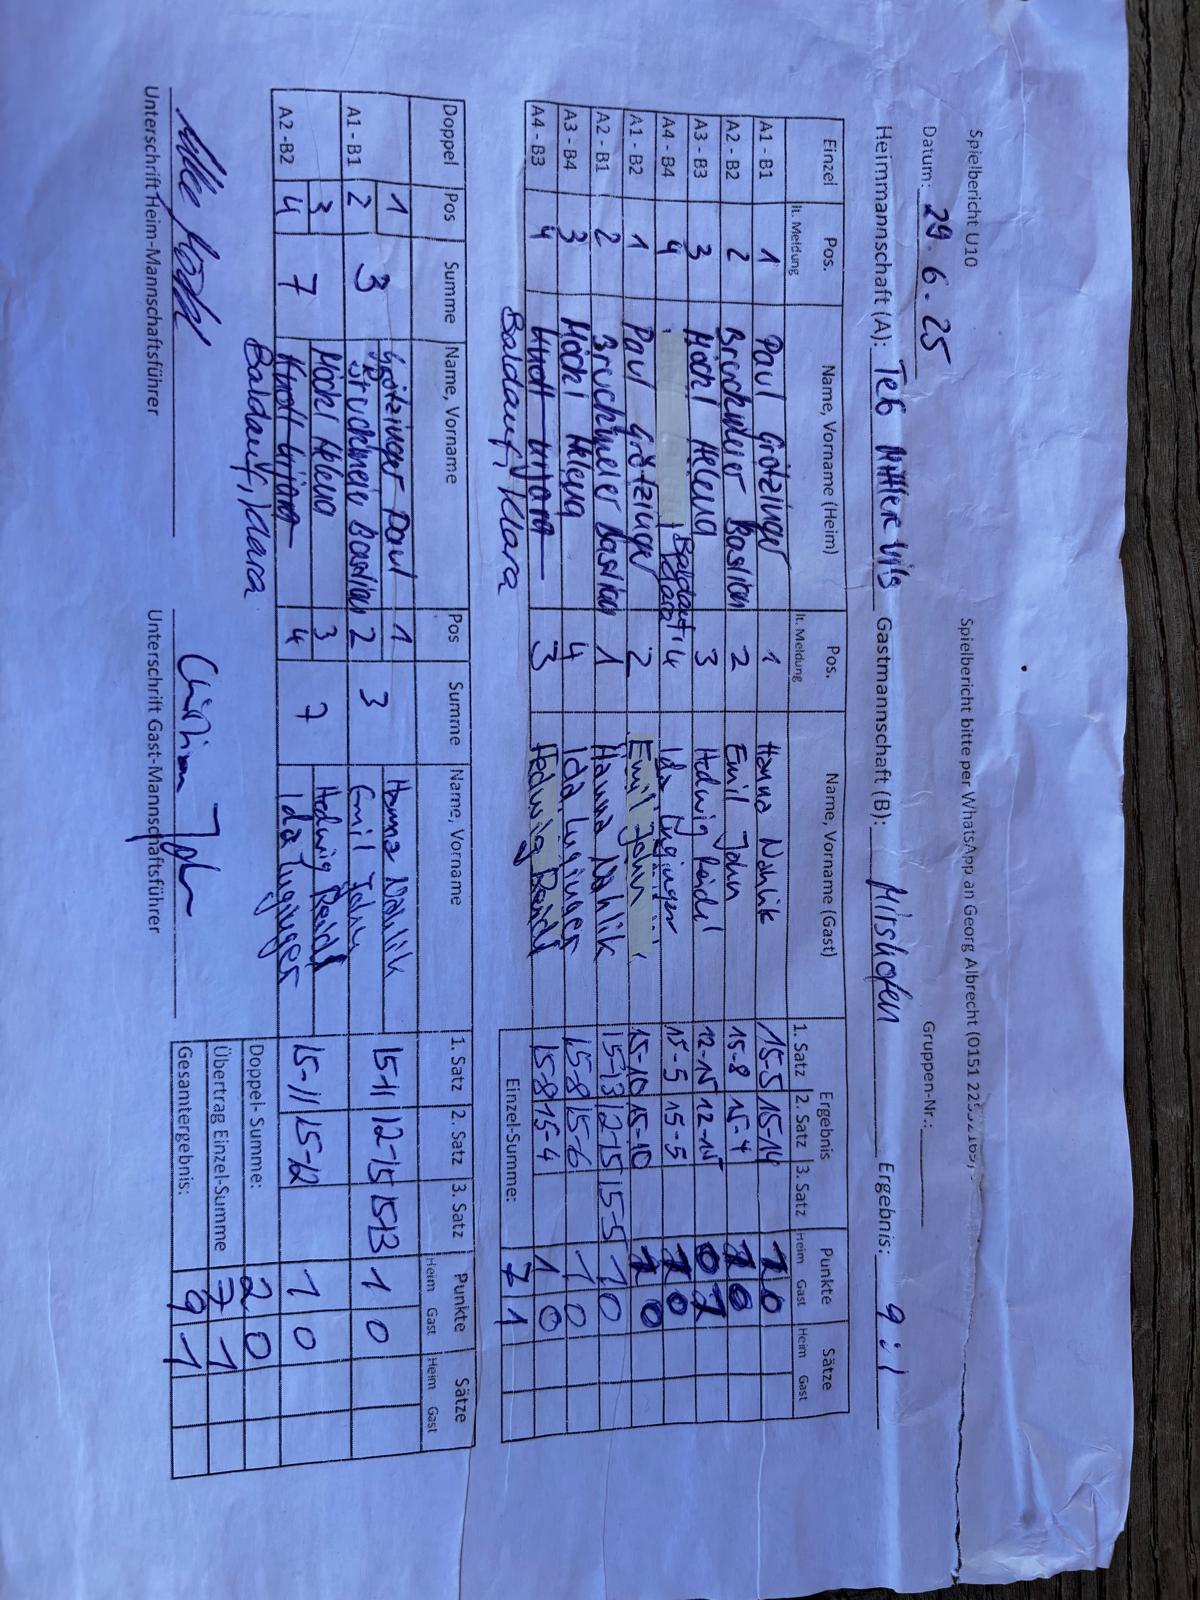 Spielbericht U10
Spielbericht bitte per WhatsApp an Georg Albrecht (0151
Datum: 29.6.25 Gruppen-Nr.:
Heimmannschaft (A): TeG Vils Gastmannschaft (B): Mirskofen Ergebnis: 9:1
Einzel Pos. lt. Meldung Name, Vorname (Heim) Pos. lt. Meldung Name, Vorname (Gast) Ergebnis 1. Satz 2. Satz 3. Satz Punkte Heim Gast Sätze Heim Gast
A1 - B1 1 Paul Grötzinger 1 Hanna Wahlik 15-5 15-14 1 0
A2 - B2 2 Bruckmeier Bastian 2 Emil Jahn 15-8 15-4 1 0
A3 - B3 3 Möchl Helena 3 Hedwig Reidl 12-15 12-15 0 1
A4 - B4 4 Baldauf, Klara 4 Ida Luginger 15-5 15-5 1 0
A1 - B2 1 Paul Grötzinger 2 Emil Jahn 15-10 15-10 1 0
A2 - B1 2 Bruckmeier Bastian 1 Hanna Wahlik 15-13 12-15 15-5 1 0
A3 - B4 3 Möchl Helena 4 Ida Luginger 15-8 15-6 1 0
A4 - B3 4 3 Hedwig Reidl 15-8 15-4 1 0
Baldauf, Klara Einzel-Summe: 7 1
Doppel Pos Summe Name, Vorname Pos Summe Name, Vorname 1. Satz 2. Satz 3. Satz Punkte Heim Gast Sätze Heim Gast
1 Grötzinger Paul 1 Hanna Wahlik
A1 - B1 2 3 Bruckmeier Bastian 2 3 Emil Jahn 15-11 12-15 15-13 1 0
3 Möchl Helena 3 Hedwig Reidl
A2 - B2 4 7 4 7 Ida Luginger 15-11 15-12 1 0
Baldauf, Klara Doppel- Summe: 2 0
Übertrag Einzel-Summe 7 1
Gesamtergebnis: 9 1
Unterschrift Heim-Mannschaftsführer Unterschrift Gast-Mannschaftsführer